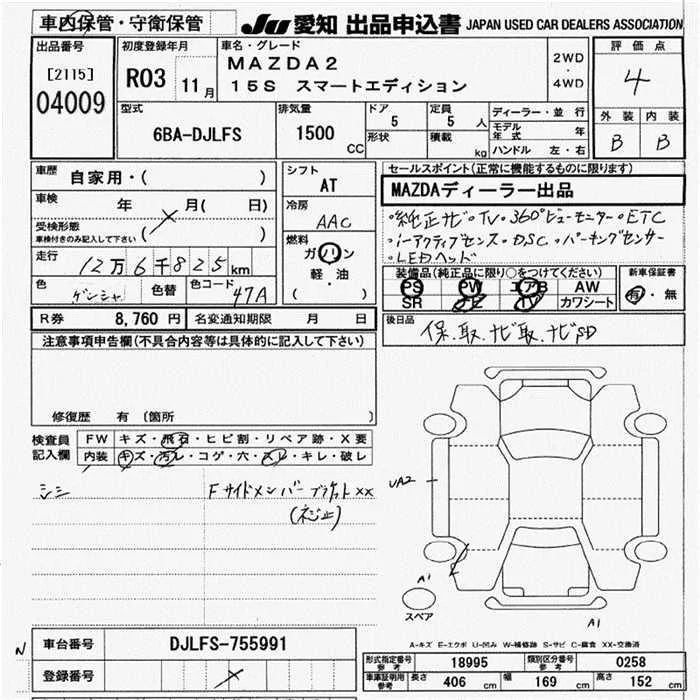 車内保管・守衛保管
JU 愛知 出品申込書 JAPAN USED CAR DEALERS ASSOCIATION
出品番号
[2115]
04009
初度登録年月
R03 11月
車名・グレード
MAZDA2
15S スマートエディション
2WD
・
4WD
評価点
4
外装 内装
B B
型式
6BA-DJLFS
排気量
1500 CC
ドア
5
形状
定員
5 人
積載
kg
ディーラー・並行
モデル年式 年
ハンドル 左・右
車歴
自家用・( )
車検 年 月( 日)
受検形態
車検付きのみ記入して下さい ( )
走行
12万6千825km
色 色替 色コード 47A
シフト
AT
冷房
AAC
燃料
ガソリン
軽・油
( )
セールスポイント(正常に機能するものに限ります)
MAZDAディーラー出品
・純正ナビ・TV・360°ビューモニター・ETC
・i-アクティブセンス・DSC・パーキングセンサー
・LEDヘッド
装備品(純正品に限り○をつけてください)
PS PW エアB AW
SR ナビ TV カワシート
新車保証書
有・無
R券 8,760円 名変通知期限 月 日
後日品
保.取.ナビ取.ナビSD
注意事項申告欄(不具合内容等は具体的に記入して下さい)
修復歴 有 〔箇所 〕
検査員
記入欄
FW キズ・飛石・ヒビ割・リペア跡・X要
内装 キズ・汚レ・コゲ・穴・スレ・キレ・破レ
Fサイドメンバーブラケットxx
(ネジ止)
UA2
A1
スペア
A1
N
車台番号 DJLFS-755991
登録番号
A-キズ E-エクボ U-凹み W-補修跡 S-サビ C-腐食 XX-交換済
形式指定番号
参考
18995
類別区分番号
参考
0258
車庫証明用
参考
長さ 406 cm 幅 169 cm 高さ 152 cm